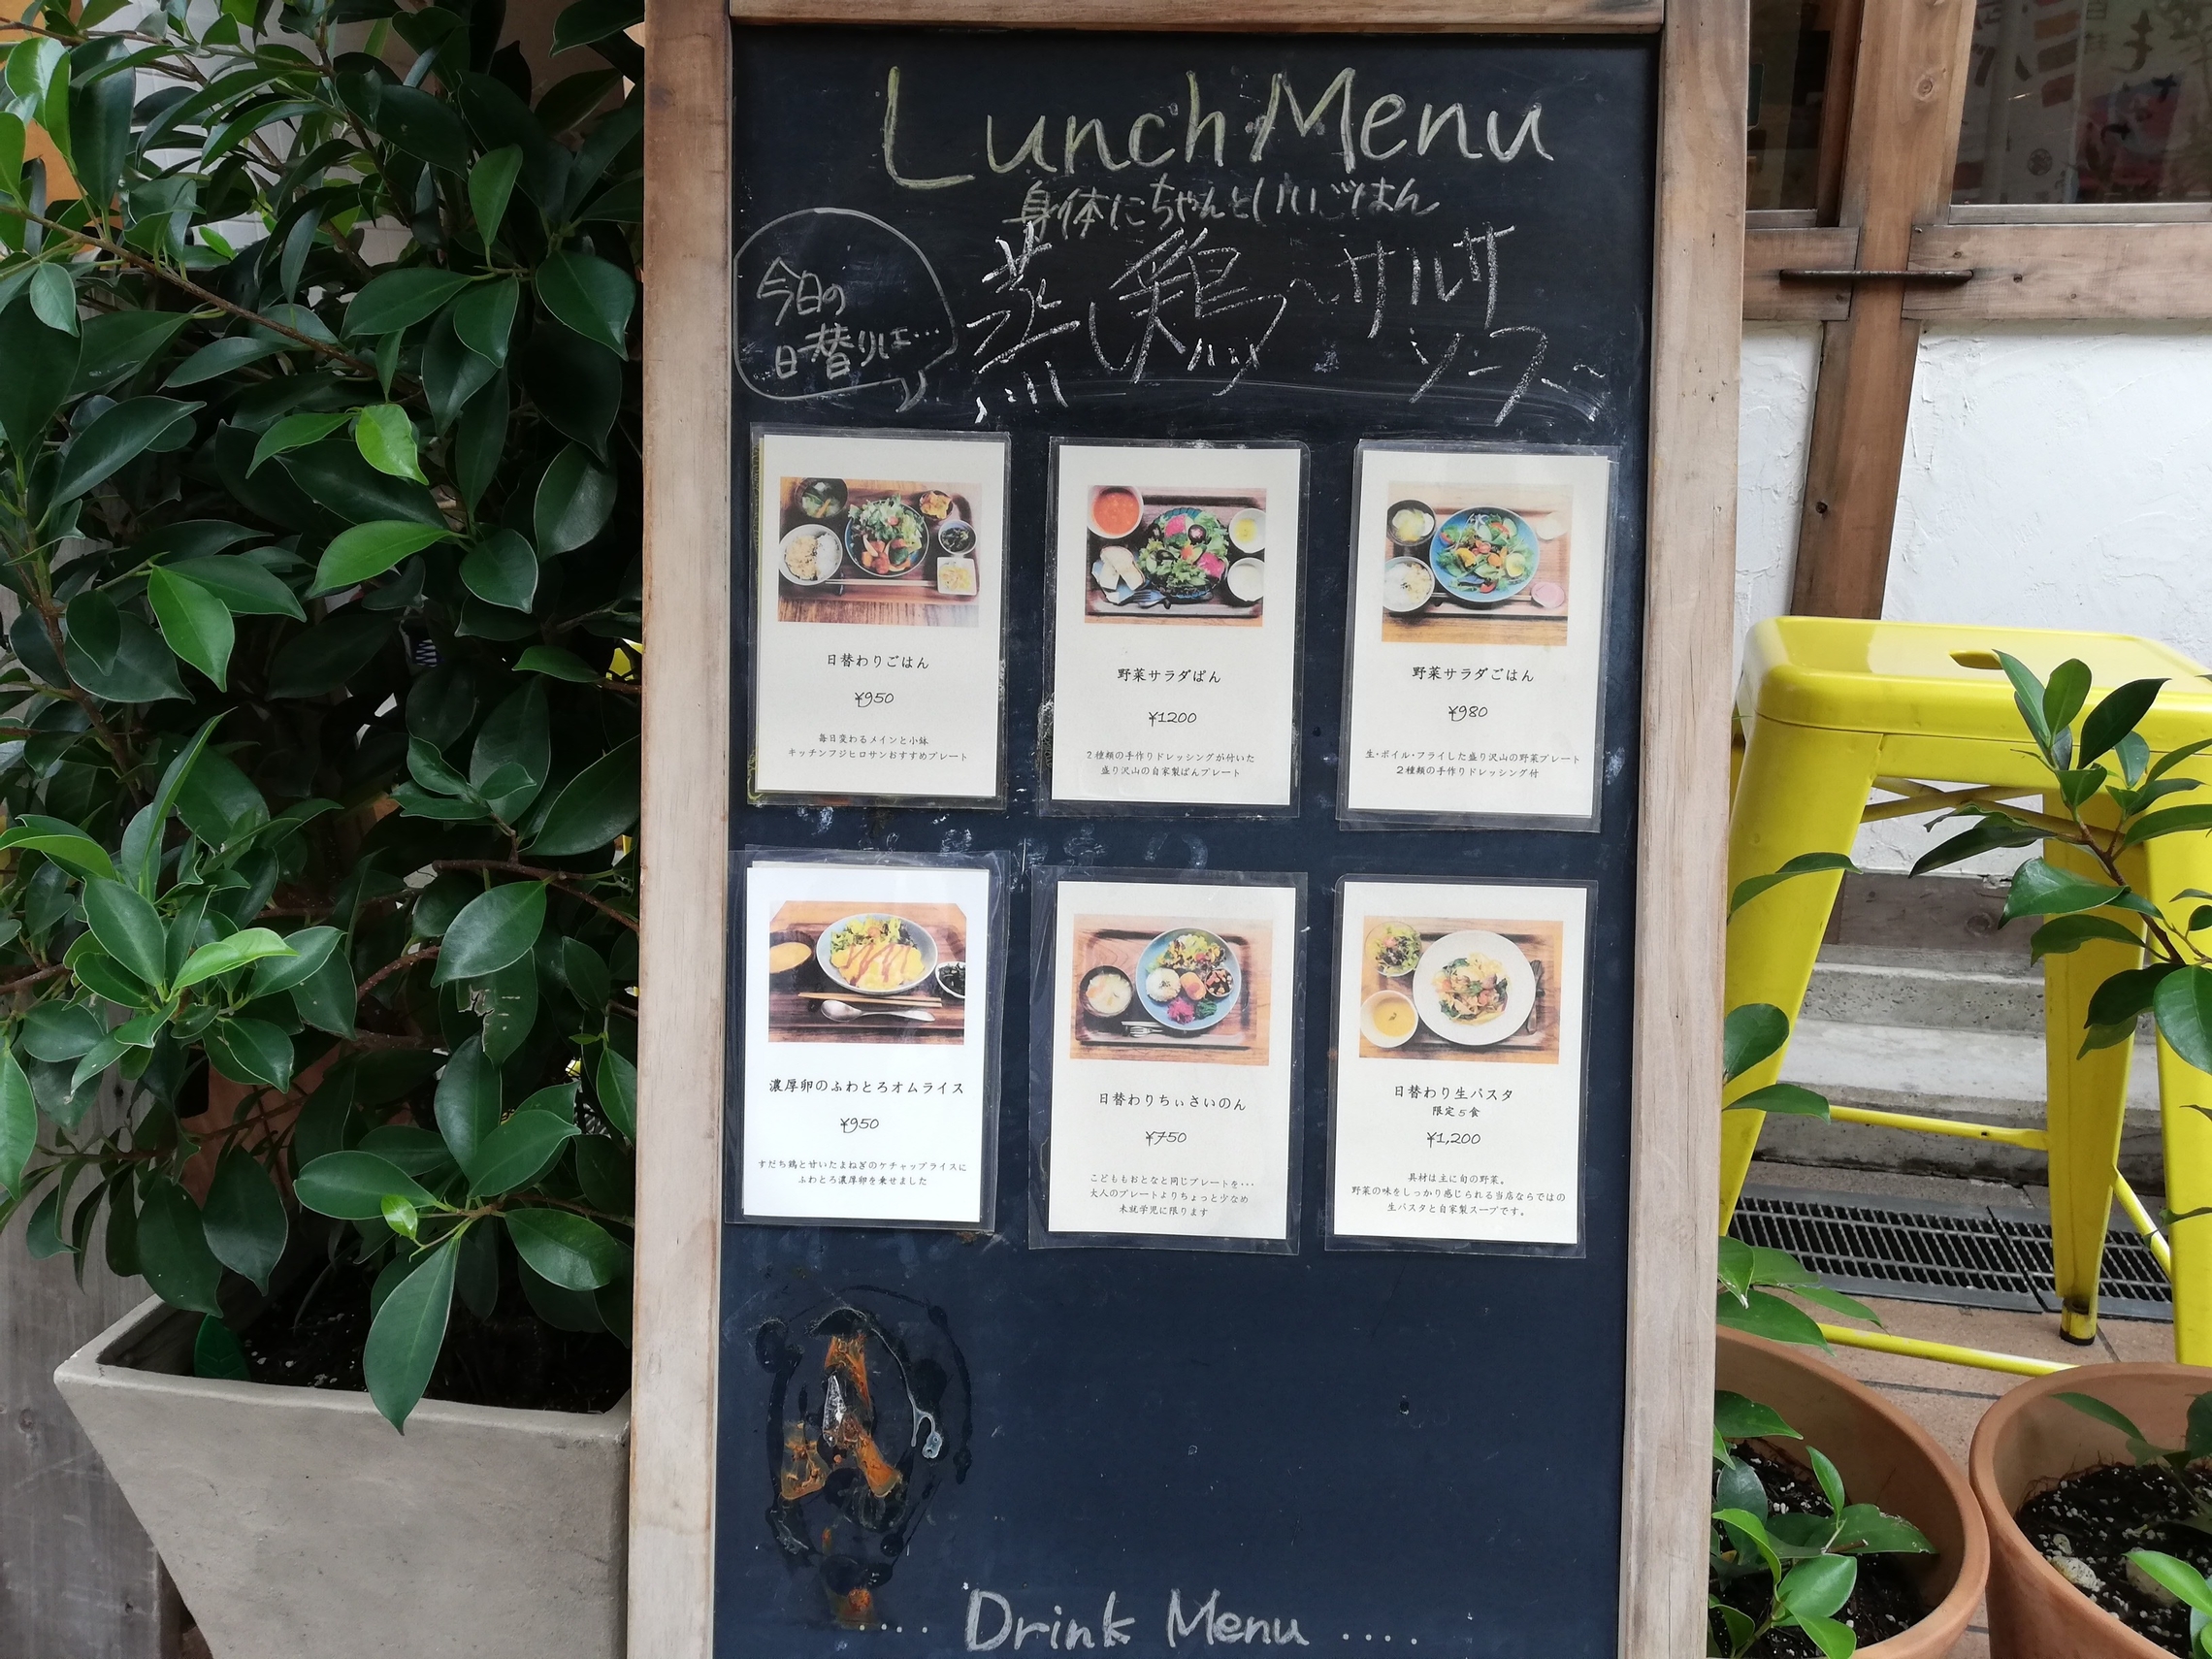 Lunch Menu
身体にちゃんといいごはん
今日の
日替りは…
蒸し鶏〜サルサ
ソース〜
日替わりごはん
¥950
毎日変わるメインと小鉢
キッチンフジヒロサンおすすめプレート
野菜サラダぱん
¥1200
2種類の手作りドレッシングが付いた
盛り沢山の自家製ぱんプレート
野菜サラダごはん
¥980
生・ボイル・フライした盛り沢山の野菜プレート
2種類の手作りドレッシング付
濃厚卵のふわとろオムライス
¥950
すだち鶏と甘いたまねぎのケチャップライスに
ふわとろ濃厚卵を乗せました
日替わりちぃさいのん
¥750
こどももおとなと同じプレートを・・・
大人のプレートよりちょっと少なめ
未就学児に限ります
日替わり生パスタ
限定5食
¥1,200
具材は主に旬の野菜。
野菜の味をしっかり感じられる当店ならではの
生パスタと自家製スープです。
.... Drink Menu ....